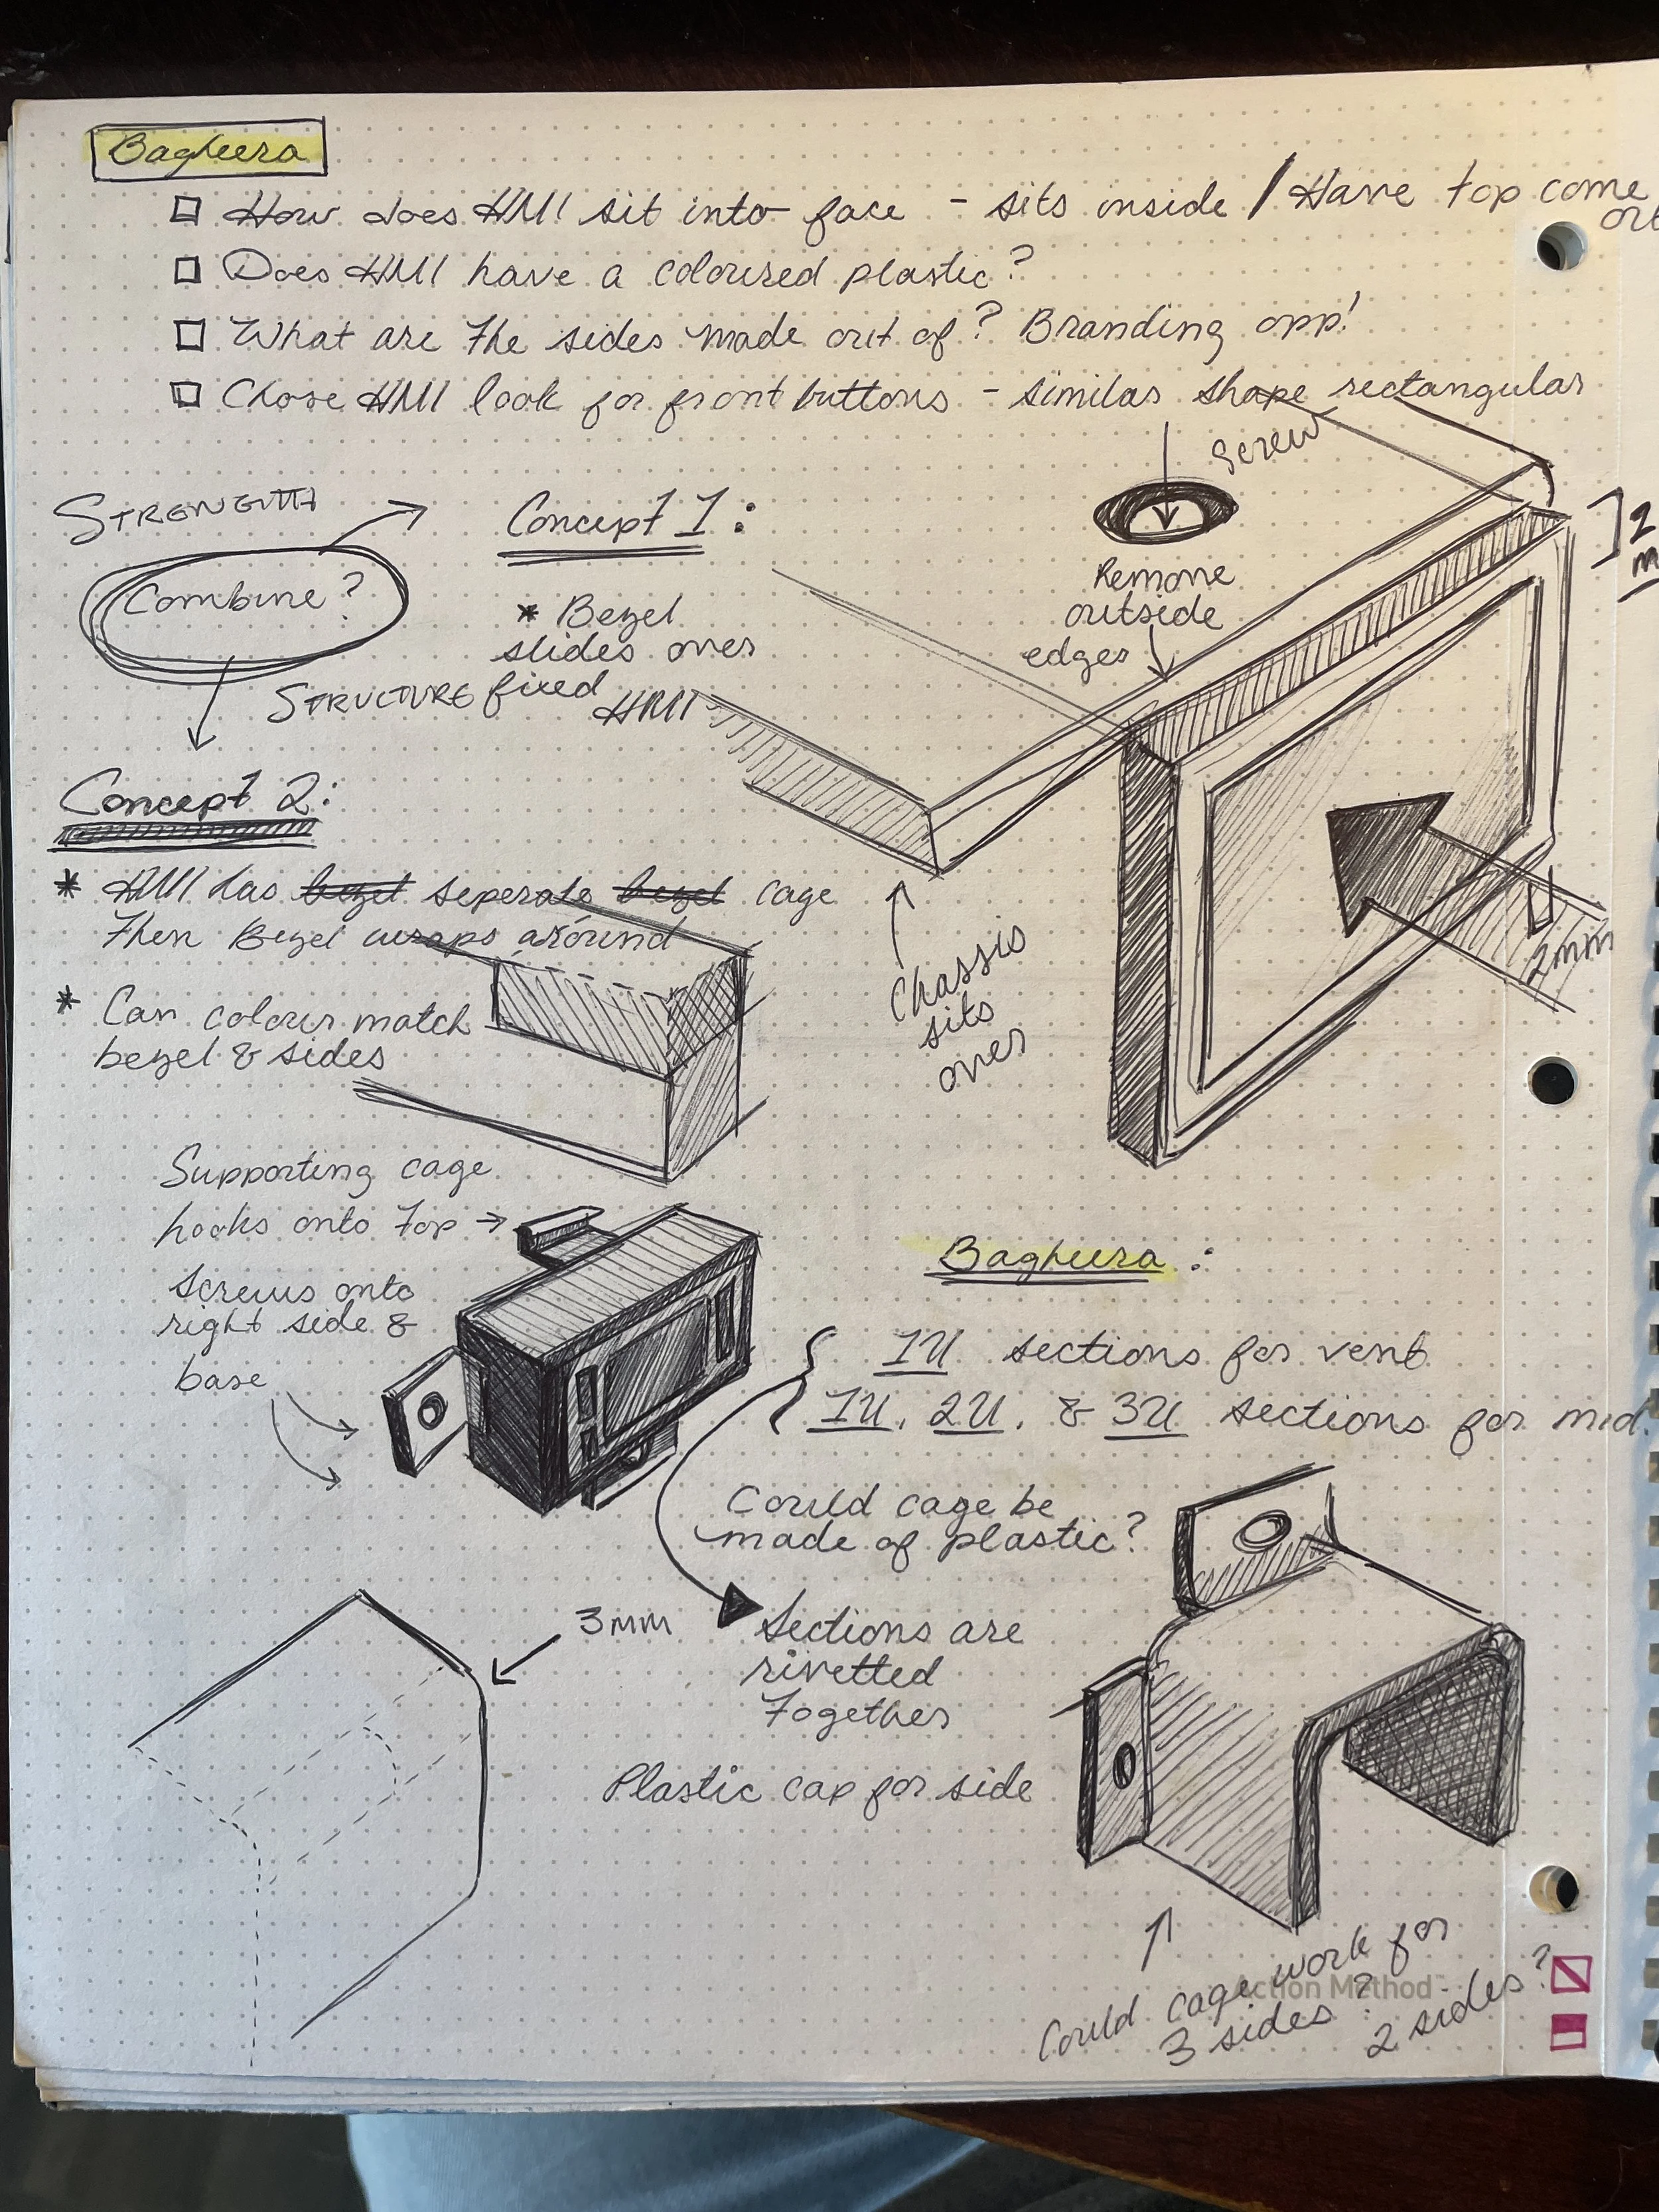 Bagheera
How does HMI sit into face - sits inside / Have top come out
Does HMI have a coloured plastic?
What are the sides made out of? Branding opp!
Chose HMI look for front buttons - similar shape rectangular
STRENGTH
Combine?
STRUCTURE
Concept 1:
* Bezel
slides over
fixed HMI
Screw
Remove
outside
edges
2
m
2mm
Chassis
sits
over
Concept 2:
* HMI has bezel seperate bezel cage
Then Bezel wraps around
* Can colour match
bezel & sides
Supporting cage
hooks onto top →
Screws onto
right side &
base
Bagheera:
1U sections for vent
1U, 2U, & 3U sections for mid.
Could cage be
made of plastic?
3mm
Sections are
rivetted
Together
Plastic cap for side
Could cage work for
3 sides? 2 sides?
Action Method